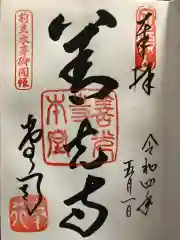 奉拝
令和四年
五月一日
善光寺
善光寺
本堂
前立本尊御開帳